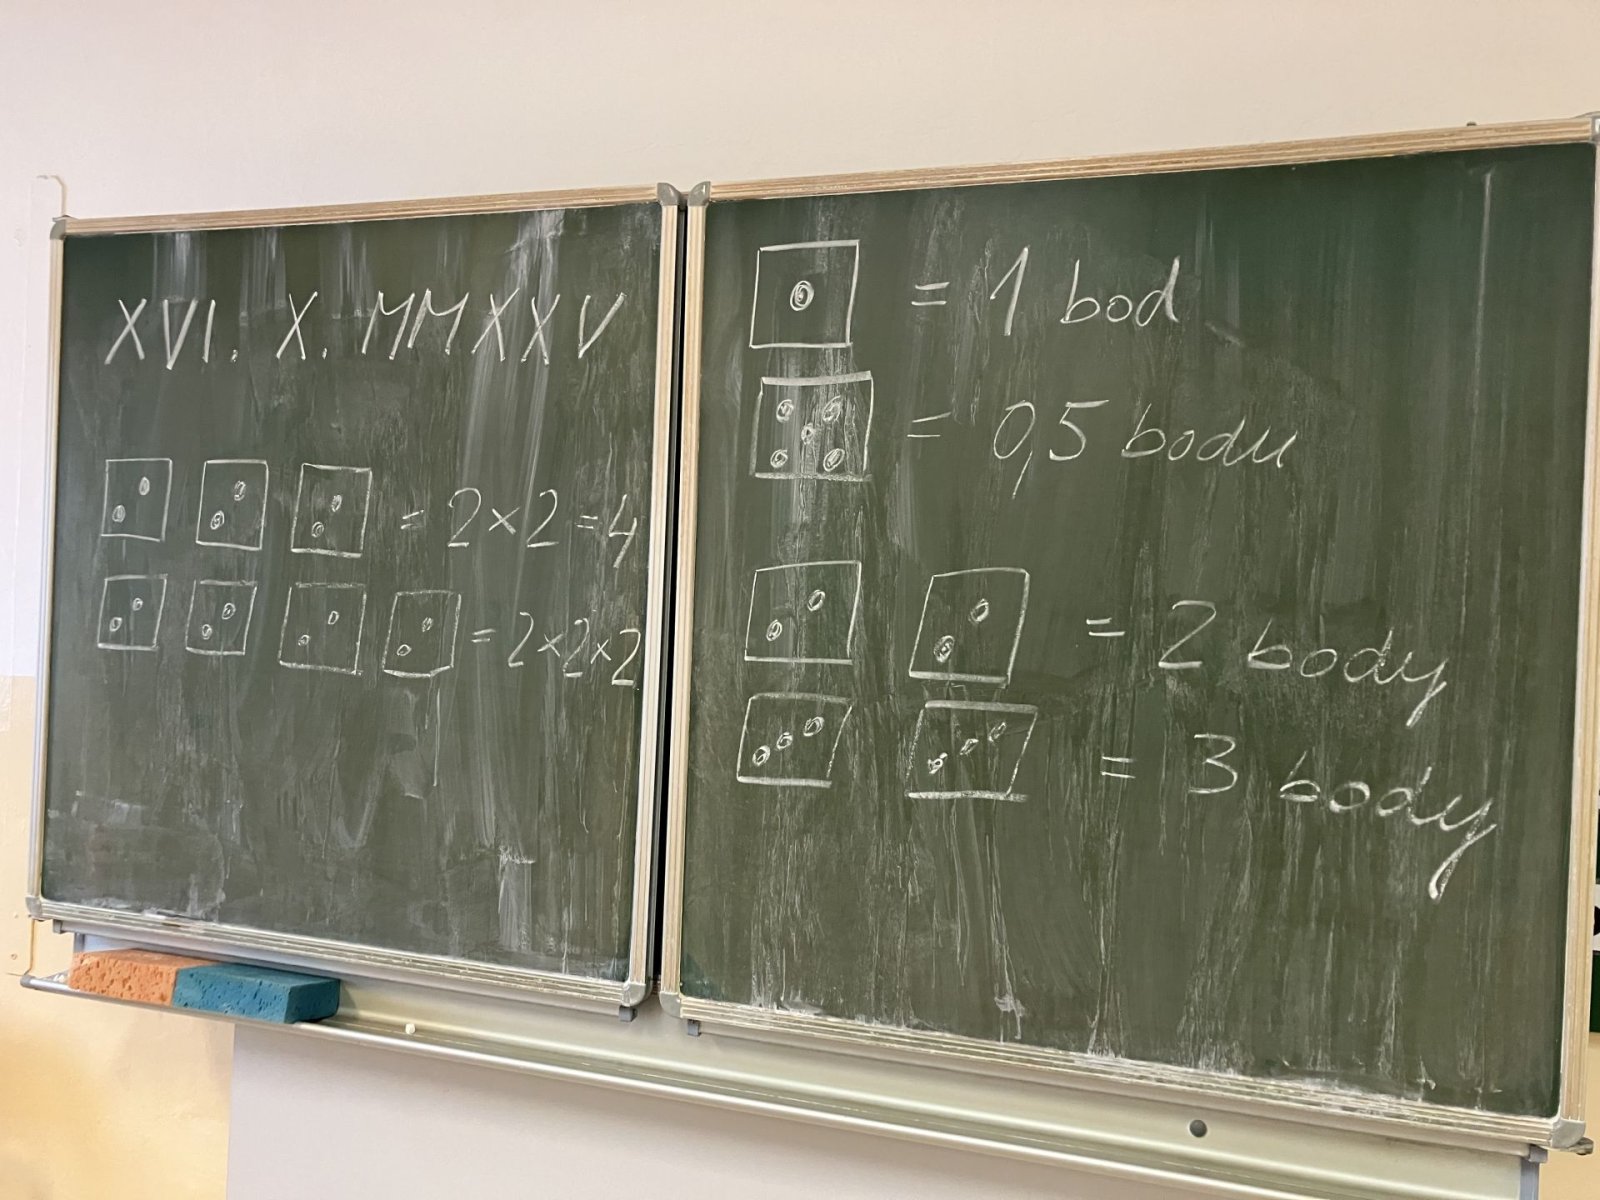 XVI. X. MMXXV
= 2×2=4
= 2×2×2
= 1 bod
= 0,5 bodu
= 2 body
= 3 body